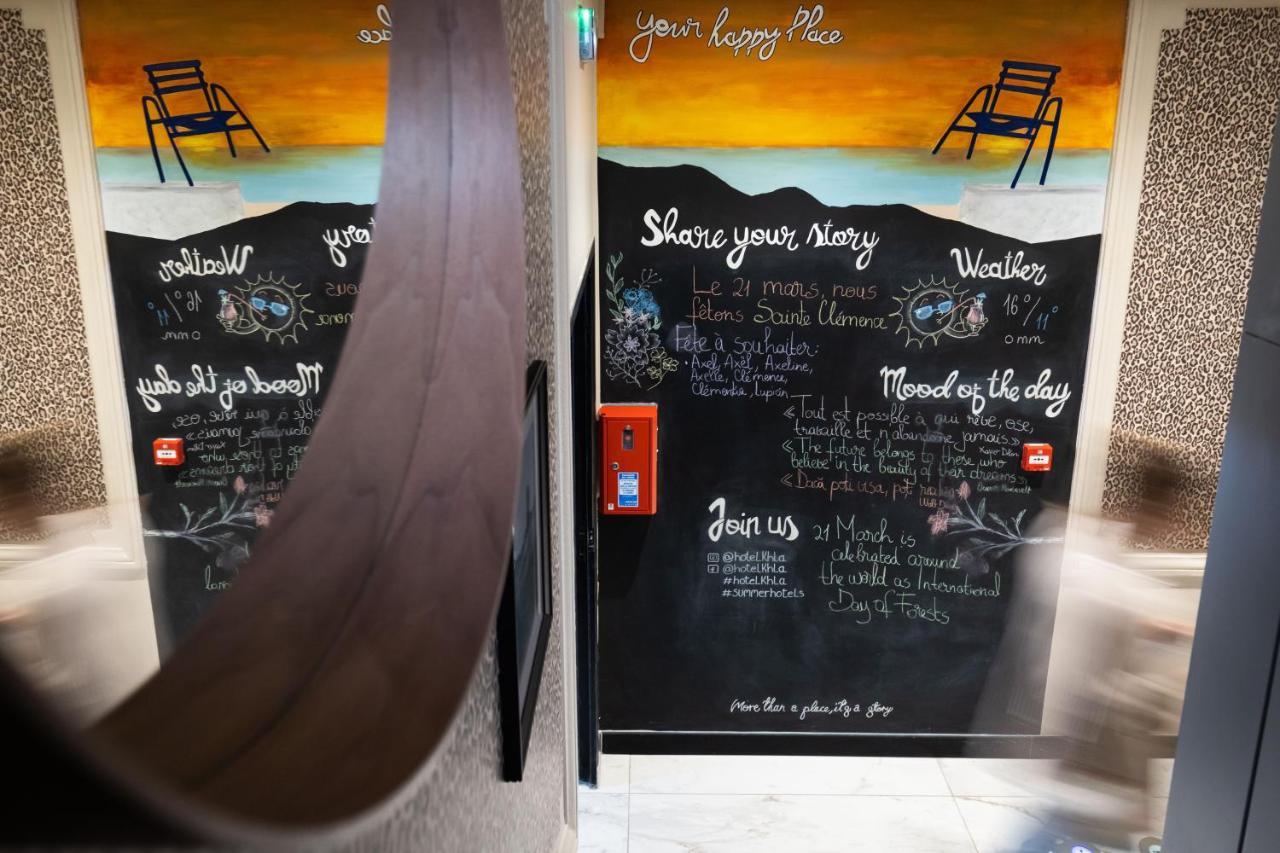 your happy Place
Share your story
Le 21 mars, nous
fêtons Sainte Clémence
Fête à souhaiter:
• Axel, Axël, Axeline,
Axelle, Clémence,
Clémentia, Lupicin
Weather
16°/11°
0 mm
Mood of the day
« Tout est possible à qui rêve, ose,
travaille et n'abandonne jamais. »
Xavier Dolan
« The future belongs to those who
believe in the beauty of their dreams »
Eleanor Roosevelt
« Dacă poți visa, poți
Join us
@hotel.Khla
@hotel.Khla
#hotel.Khla
#summerhotels
21 March is
celebrated around
the world as International
Day of Forests
More than a place, it's a story